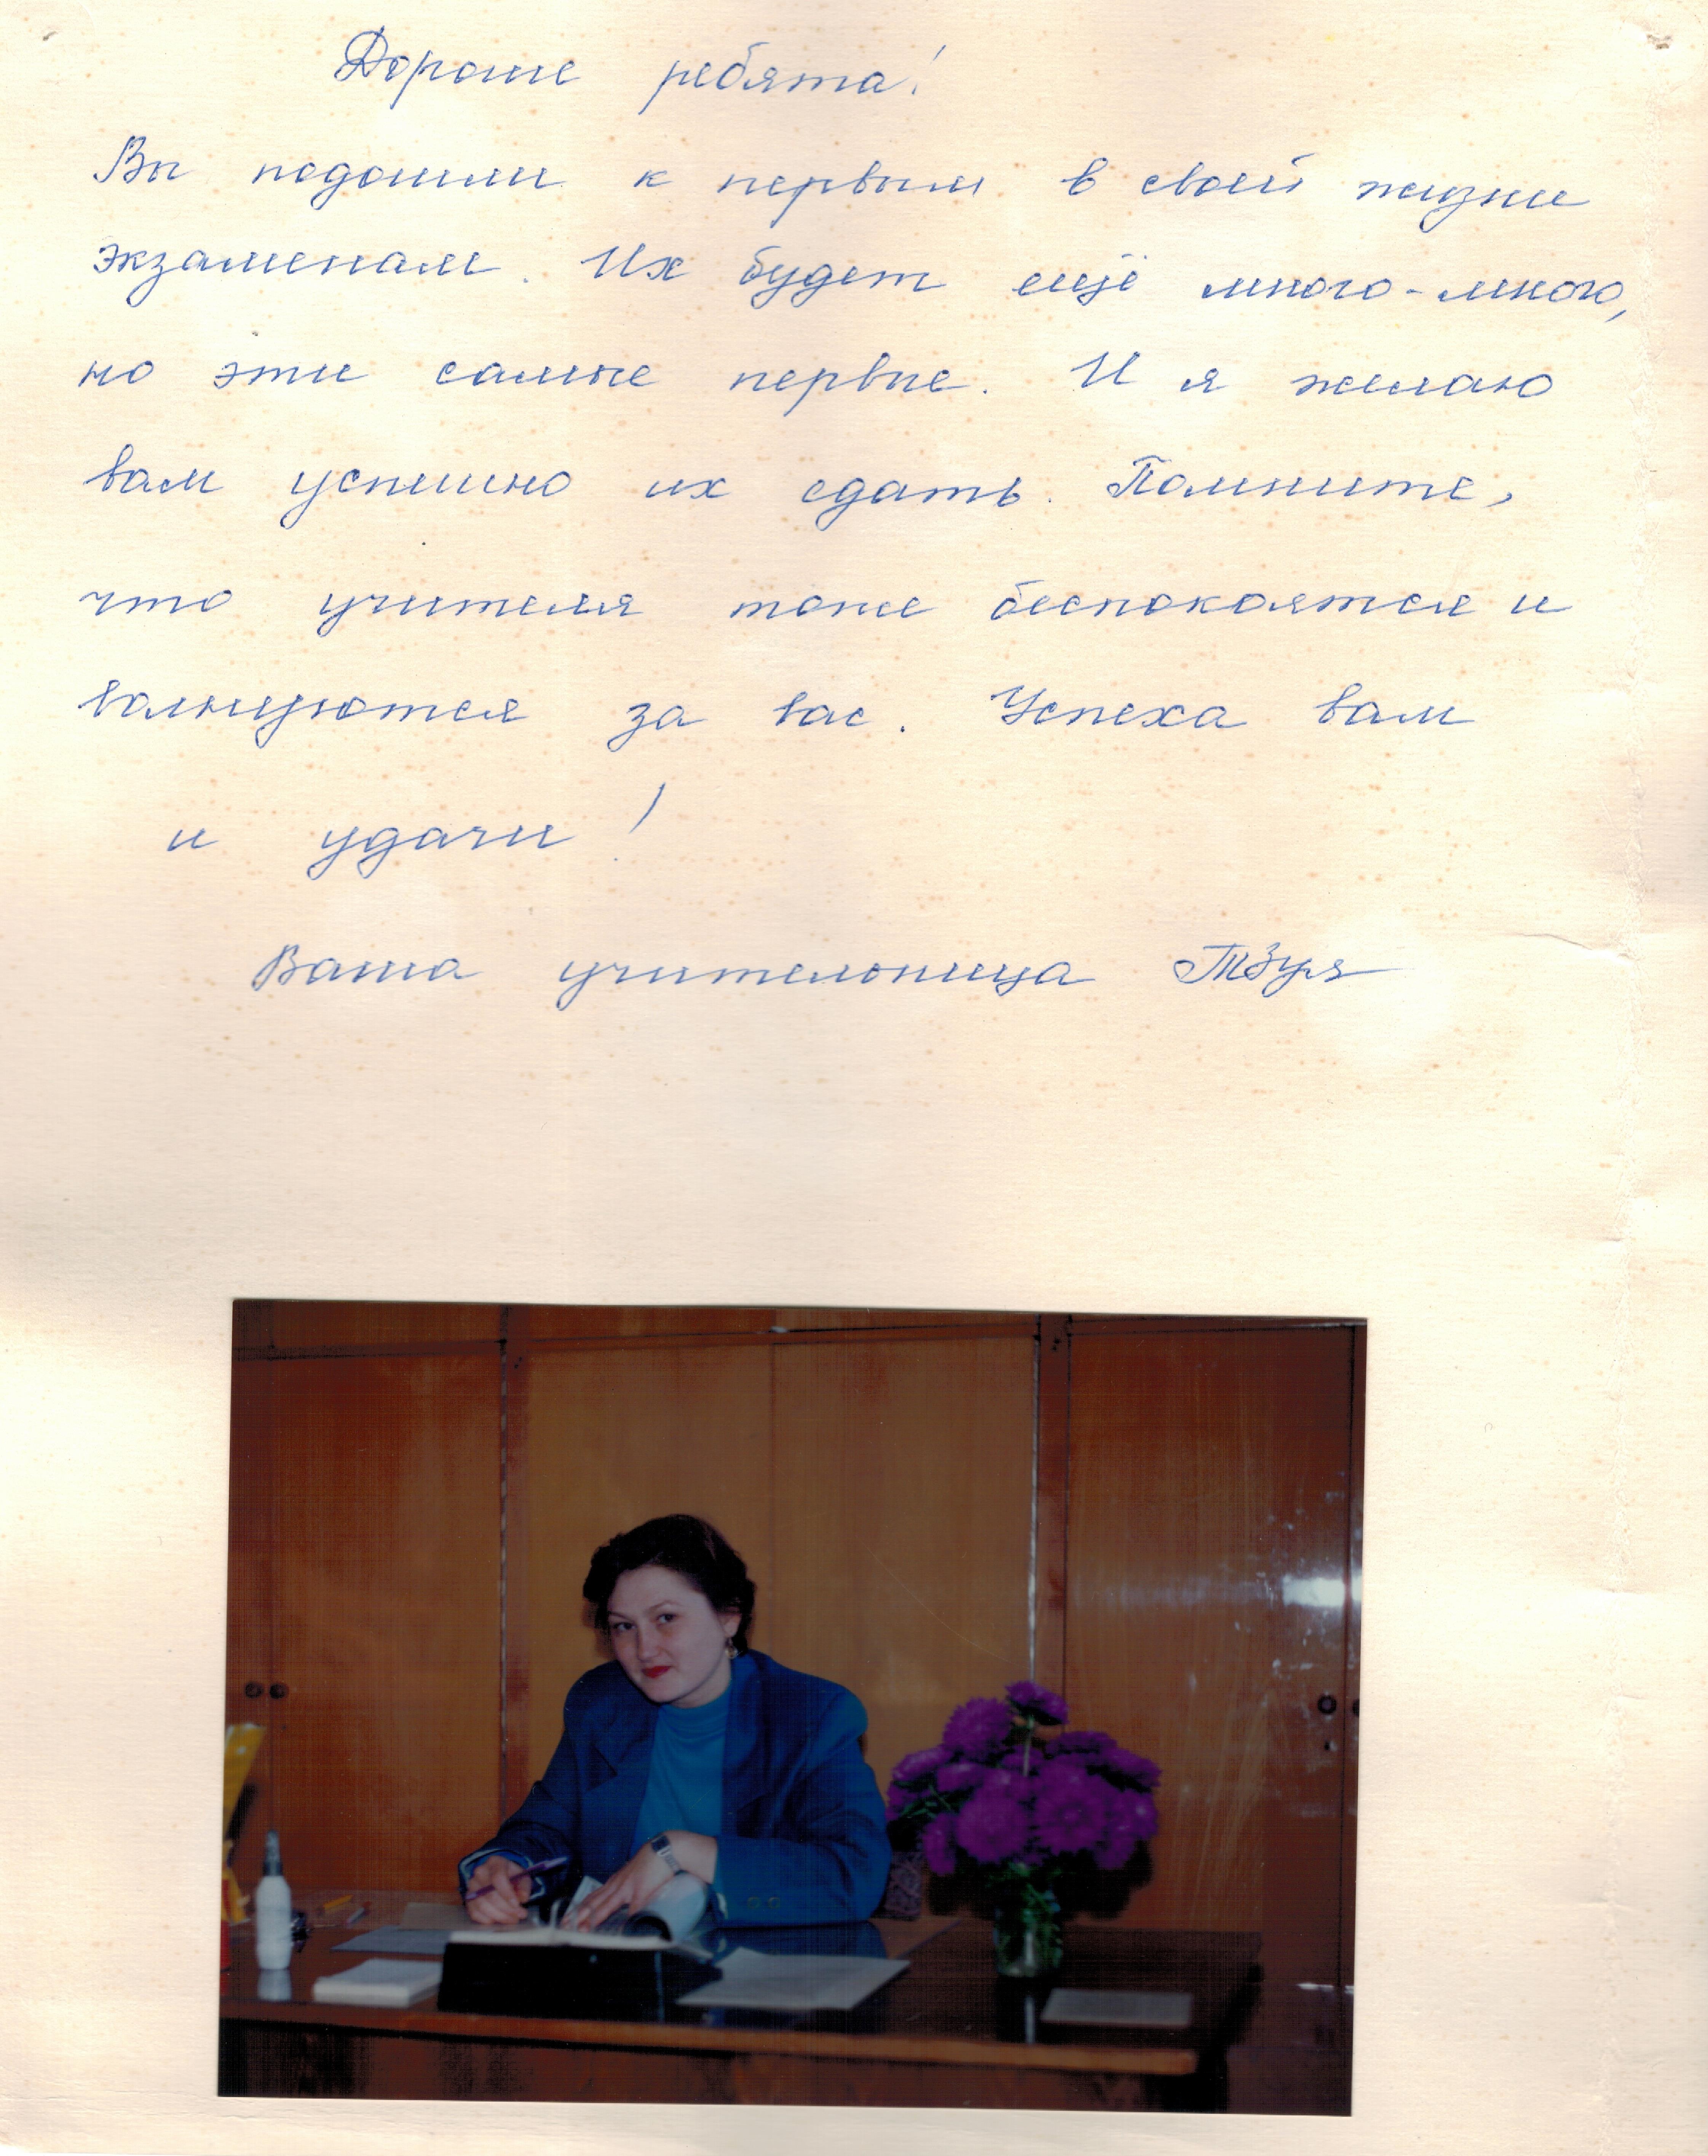 Дорогие ребята!
Вы подошли к первым в своей жизни
экзаменам. Их будет ещё много-много,
но эти самые первые. И я желаю
вам успешно их сдать. Помните,
что учителя тоже беспокоятся и
волнуются за вас. Успеха вам
и удачи!
Ваша учительница